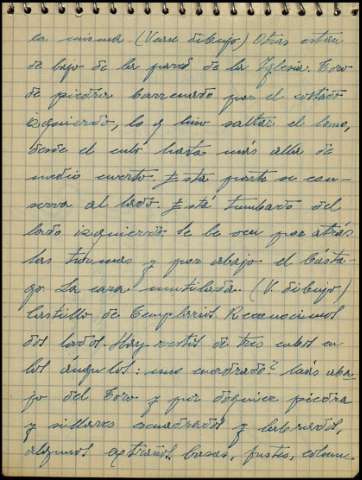 la misma (Vease dibujo) Otros estan
debajo de la pared de la Iglesia. Toro
de piedra barrenado por el costado
izquierdo, lo q hizo saltar el lomo,
desde el culo hasta más allá de
medio cuerpo. Esta parte se con-
serva al lado. Está tumbado del
lado izquierdo. Se le ven por atrás
las turmas y por abajo el básta-
go. La cara mutilada. (V. dibujo)
Castillo de Templarios Reconocimos
dos lados. Hay restos de tres cubos en
los ángulos: uno cuadrado? más aba-
jo del Toro y por doquier piedra
y sillares escuadrados y labrados,
algunos extraños, basas, fustes, column.